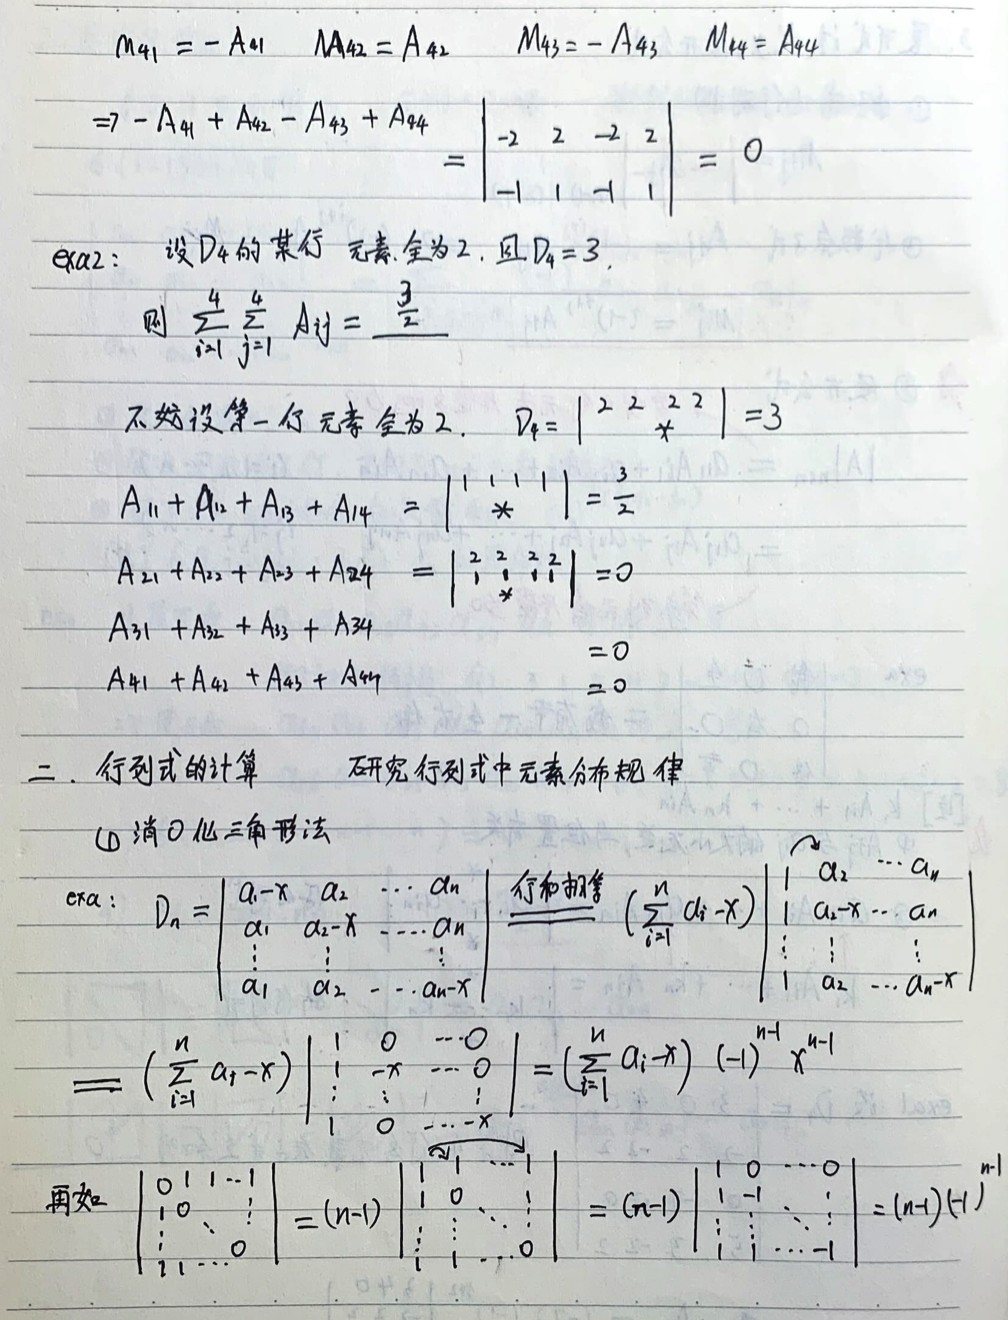 M41 = -A41 M42 = A42 M43 = -A43 M44 = A44
=> -A41 + A42 - A43 + A44 = | -2 2 -2 2 ; -1 1 -1 1 | = 0
exa2: 设D4的某行元素全为2. 且D4=3,
则 ∑(i=1→4) ∑(j=1→4) Aij = 3/2
不妨设第一行元素全为2. D4 = | 2 2 2 2 ; * | = 3
A11 + A12 + A13 + A14 = | 1 1 1 1 ; * | = 3/2
A21 + A22 + A23 + A24 = | 2 2 2 2 ; 1 1 1 1 ; * | = 0
A31 + A32 + A33 + A34 = 0
A41 + A42 + A43 + A44 = 0
二. 行列式的计算 研究行列式中元素分布规律
(1) 消0化三角形法
exa: Dn = | a1-x a2 ⋯ an ; a1 a2-x ⋯ an ; ⋮ ⋮ ⋮ ; a1 a2 ⋯ an-x | 行和相等 == (∑(i=1→n) ai-x) | 1 a2 ⋯ an ; 1 a2-x ⋯ an ; ⋮ ⋮ ⋮ ; 1 a2 ⋯ an-x |
== (∑(i=1→n) ai-x) | 1 0 ⋯ 0 ; 1 -x ⋯ 0 ; ⋮ ⋮ ⋮ ; 1 0 ⋯ -x | = (∑(i=1→n) ai-x) (-1)^(n-1) x^(n-1)
再如 | 0 1 1 ⋯ 1 ; 1 0 ; ⋮ ⋱ ⋮ ; 1 1 ⋯ 0 | = (n-1) | 1 1 ⋯ 1 ; 1 0 ⋮ ; ⋮ ⋮ ⋱ ⋮ ; 1 1 ⋯ 0 | = (n-1) | 1 0 ⋯ 0 ; 1 -1 ⋮ ; ⋮ ⋱ ⋮ ; 1 1 ⋯ -1 | = (n-1)(-1)^(n-1)